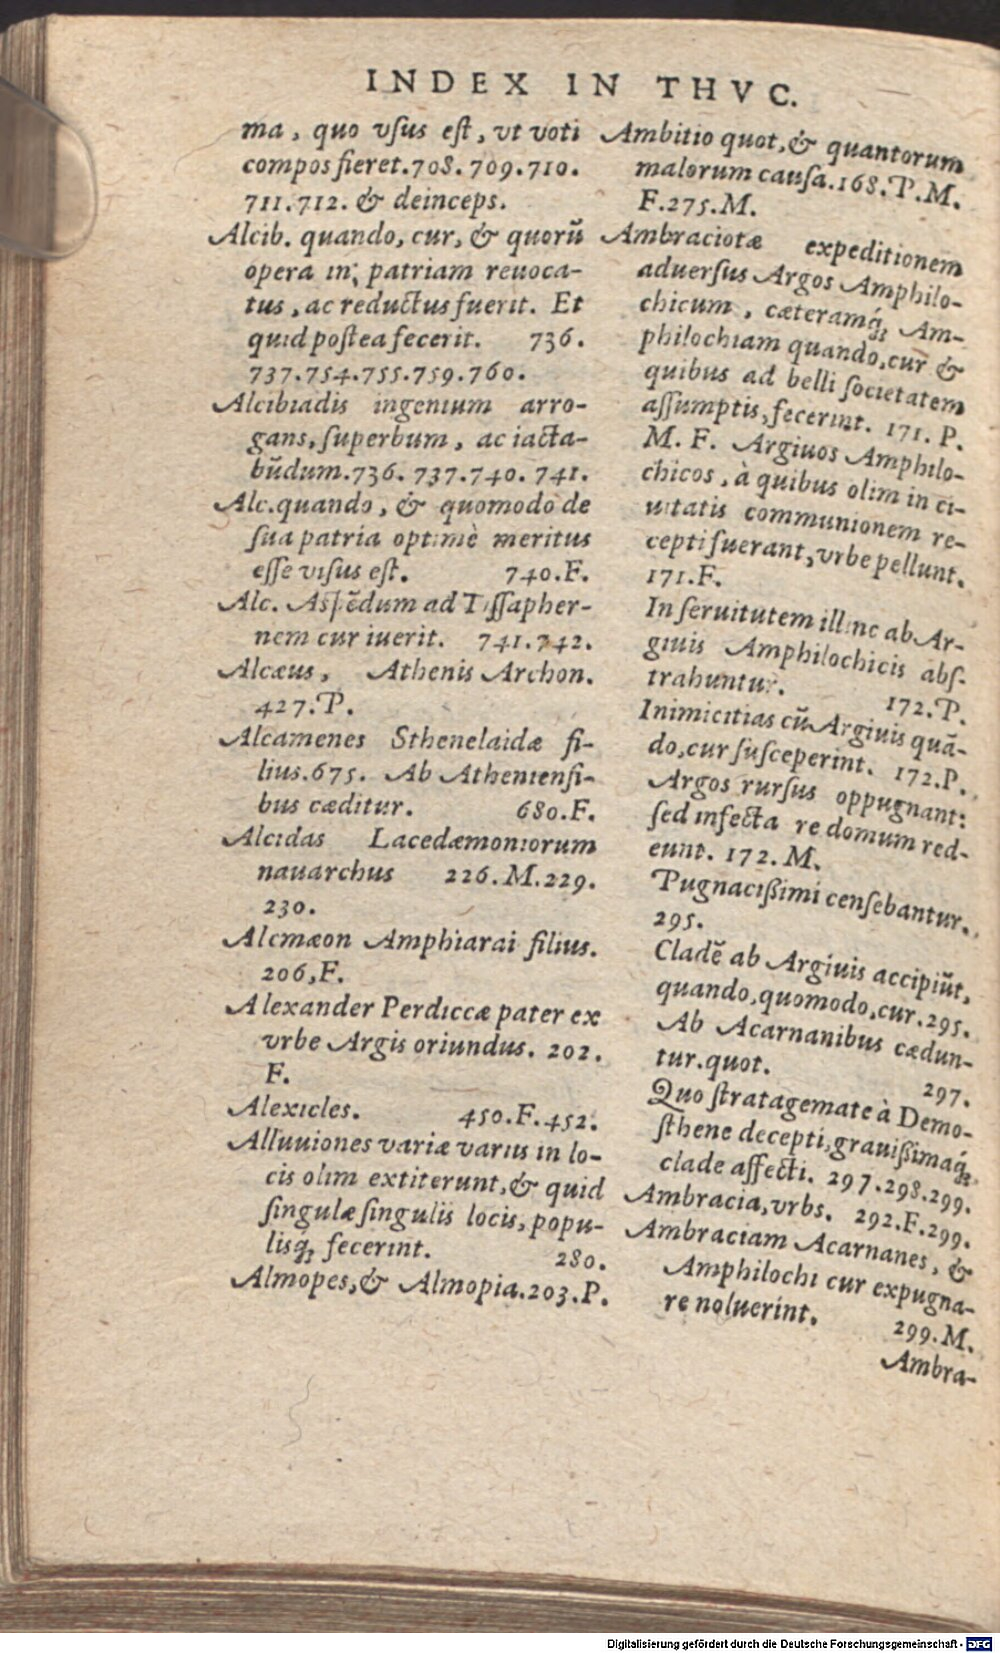 INDEX IN THVC.
ma, quo vſus eſt, vt voti
compos fieret.708.709.710.
711.712. & deinceps.
Alcib. quando, cur, & quorũ
opera in, patriam reuoca-
tus, ac reductus fuerit. Et
quid poſtea fecerit. 736.
737.754.755.759.760.
Alcibiadis ingenium arro-
gans, ſuperbum, ac iacta-
bũdum.736. 737.740. 741.
Alc.quando, & quomodo de
ſua patria optimè meritus
eſſe viſus eſt. 740.F.
Alc. Aſpẽdum ad Tiſſapher-
nem cur iuerit. 741.742.
Alcæus, Athenis Archon.
427.P.
Alcamenes Sthenelaidæ fi-
lius.675. Ab Athenienſi-
bus cæditur. 680.F.
Alcidas Lacedæmoniorum
nauarchus 226.M.229.
230.
Alcmæon Amphiarai filius.
206,F.
Alexander Perdiccæ pater ex
vrbe Argis oriundus. 202.
F.
Alexicles. 450.F.452.
Alluuiones variæ variis in lo-
cis olim extiterunt,& quid
ſingulæ ſingulis locis, popu-
lisq́; fecerint. 280.
Almopes,& Almopia.203.P.
Ambitio quot,& quantorum
malorum cauſa.168.P.M.
F.275.M.
Ambraciotæ expeditionem
aduerſus Argos Amphilo-
chicum, cæteramq́; Am-
philochiam quando,cur &
quibus ad belli ſocietatem
aſſumptis,fecerint. 171. P.
M. F. Argiuos Amphilo-
chicos, à quibus olim in ci-
uitatis communionem re-
cepti fuerant,vrbe pellunt.
171.F.
In ſeruitutem illinc ab Ar-
giuis Amphilochicis abſ-
trahuntur. 172.P.
Inimicitias cũ Argiuis quã-
do,cur ſuſceperint. 172.P.
Argos rurſus oppugnant:
ſed infecta re domum red-
eunt. 172. M.
Pugnacißimi cenſebantur.
295.
Cladẽ ab Argiuis accipiũt,
quando,quomodo,cur.295.
Ab Acarnanibus cædun-
tur.quot. 297.
Quo ſtratagemate à Demo-
ſthene decepti,grauißimaq́;
clade affecti. 297.298.299.
Ambracia,vrbs. 292.F.299.
Ambraciam Acarnanes, &
Amphilochi cur expugna-
re noluerint. 299.M.
Ambra-
Digitalisierung gefördert durch die Deutsche Forschungsgemeinschaft - DFG